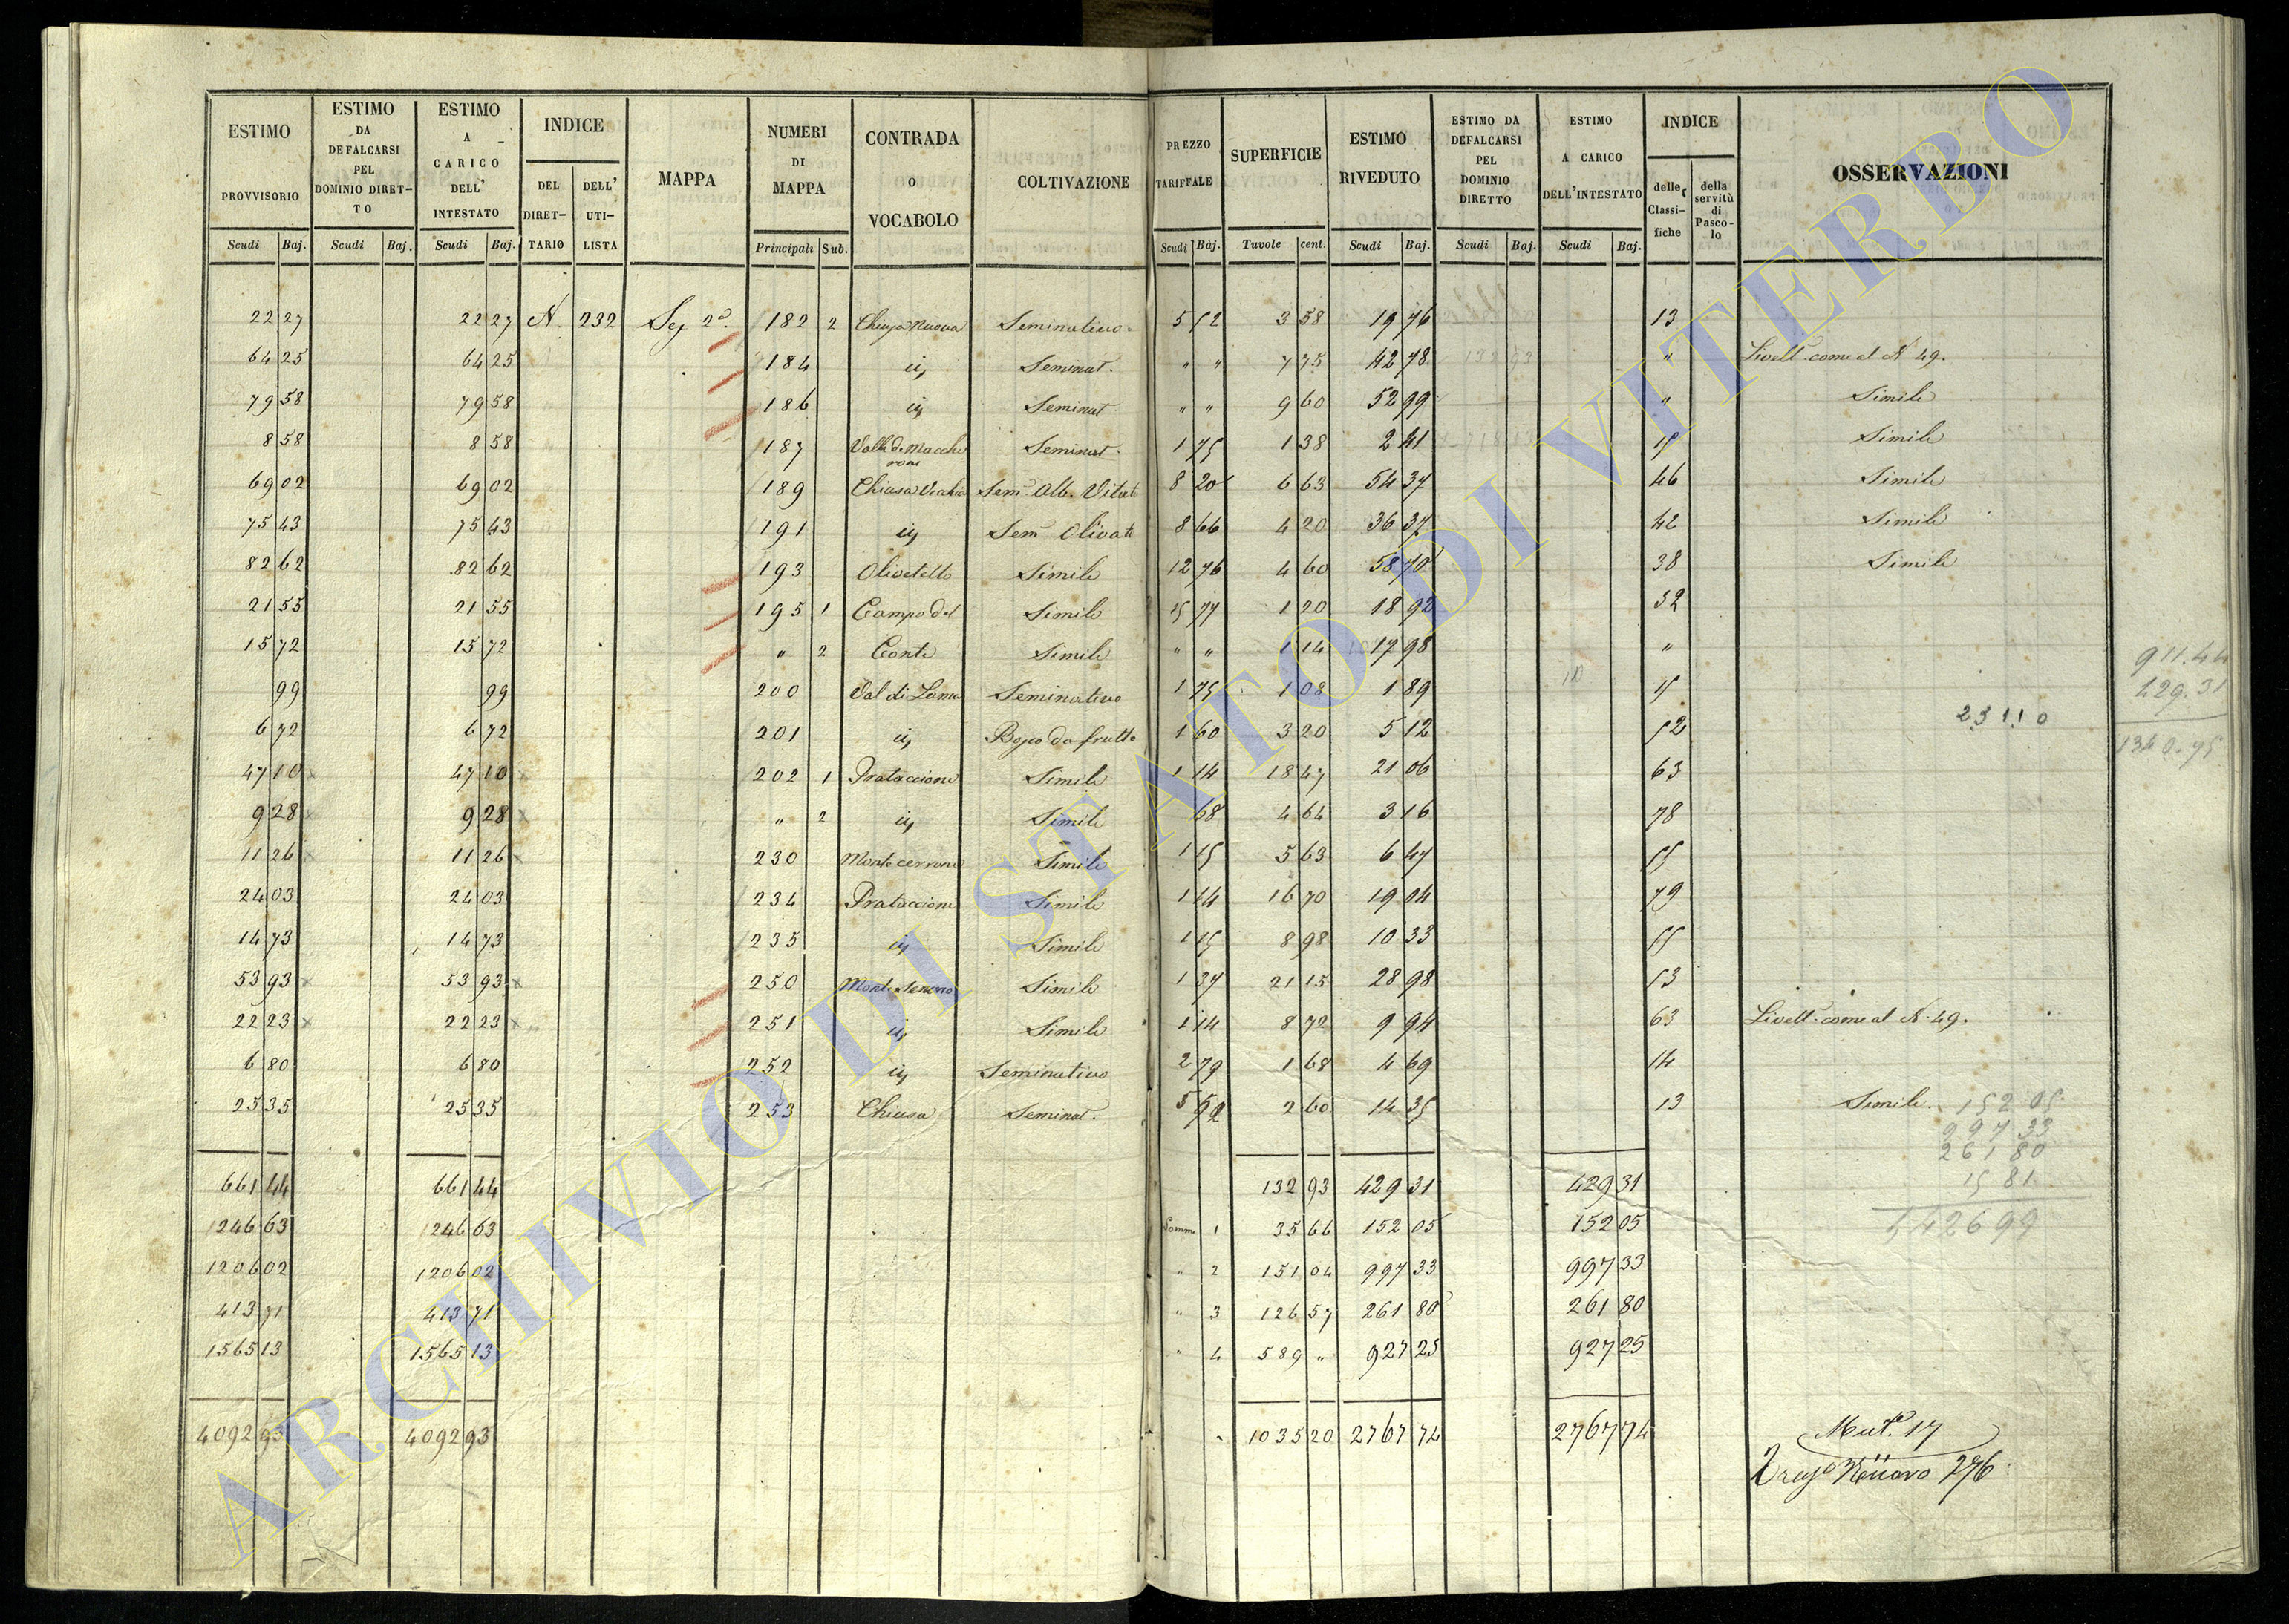 ESTIMO PROVVISORIO | ESTIMO DA DEFALCARSI PEL DOMINIO DIRET-TO | ESTIMO A CARICO DELL' INTESTATO | INDICE DEL DIRET-TARIO | DELL' UTI-LISTA | MAPPA | NUMERI DI MAPPA | CONTRADA O VOCABOLO | COLTIVAZIONE | PREZZO TARIFFALE | SUPERFICIE | ESTIMO RIVEDUTO | ESTIMO DA DEFALCARSI PEL DOMINIO DIRETTO | ESTIMO A CARICO DELL'INTESTATO | INDICE delle Classi-fiche | della servitù di Pasco-lo | OSSERVAZIONI
Scudi | Baj. | Scudi | Baj. | Scudi | Baj. | Principali | Sub. | Scudi | Baj. | Tavole | cent. | Scudi | Baj. | Scudi | Baj. | Scudi | Baj.
22 27 | 22 27 | N. 232 | Sez 2a. | 182 2 | Chiusa Nuova | Seminativo | 5 52 | 3 58 | 19 76 | 13
64 25 | 64 25 | 184 | id | Seminat. | " " | 7 75 | 42 78 | " | Livell. come al N 49.
79 58 | 79 58 | 186 | id | Seminat | " " | 9 60 | 52 99 | " | Simile
8 58 | 8 58 | 187 | Valle de Macchie rone | Seminat. | 1 75 | 1 38 | 2 41 | 15 | Simile
69 02 | 69 02 | 189 | Chiusa Vecchia | Sem. Alb. Vitat | 8 20 | 6 63 | 54 37 | 46 | Simile
75 43 | 75 43 | 191 | id | Sem Olivato | 8 66 | 4 20 | 36 37 | 42 | Simile
82 62 | 82 62 | 193 | Olivetello | Simile | 12 76 | 4 60 | 58 70 | 38 | Simile
21 55 | 21 55 | 195 1 | Campo del | Simile | 15 77 | 1 20 | 18 92 | 32
15 72 | 15 72 | " 2 | Conte | Simile | " " | 1 14 | 17 98 | "
99 | 99 | 200 | Val di Lama | Seminativo | 1 75 | 1 08 | 1 89 | 15
6 72 | 6 72 | 201 | id | Bosco da frutto | 1 60 | 3 20 | 5 12 | 52
47 10 | 47 10 | 202 1 | Prataccione | Simile | 1 14 | 18 47 | 21 06 | 63
9 28 | 9 28 | " 2 | id | Simile | 68 | 4 64 | 3 16 | 78
11 26 | 11 26 | 230 | Monte cerrone | Simile | 1 15 | 5 63 | 6 47 | 55
24 03 | 24 03 | 234 | Prataccione | Simile | 1 14 | 16 70 | 19 04 | 79
14 73 | 14 73 | 235 | id | Simile | 1 15 | 8 98 | 10 33 | 55
53 93 | 53 93 | 250 | Monte Sereno | Simile | 1 37 | 21 15 | 28 98 | 53
22 23 | 22 23 | 251 | id | Simile | 1 14 | 8 72 | 9 94 | 63 | Livell. come al N. 49.
6 80 | 6 80 | 252 | id | Seminativo | 2 79 | 1 68 | 4 69 | 14
25 35 | 25 35 | 253 | Chiusa | Seminat. | 5 52 | 2 60 | 14 35 | 13 | Simile.
661 44 | 661 44 | 132 93 | 429 31 | 429 31
1246 63 | 1246 63 | Somma 1 | 35 66 | 152 05 | 152 05
1206 02 | 1206 02 | " 2 | 151 04 | 997 33 | 997 33
413 71 | 413 71 | " 3 | 126 57 | 261 80 | 261 80
1565 13 | 1565 13 | " 4 | 589 " | 927 25 | 927 25
4092 93 | 4092 93 | 1035 20 | 2767 74 | 2767 74
911.44
429.31
1340.75
23110
152 05
997 33
261 80
15 81
142699
Mut. 17
276
ARCHIVIO DI STATO DI VITERBO